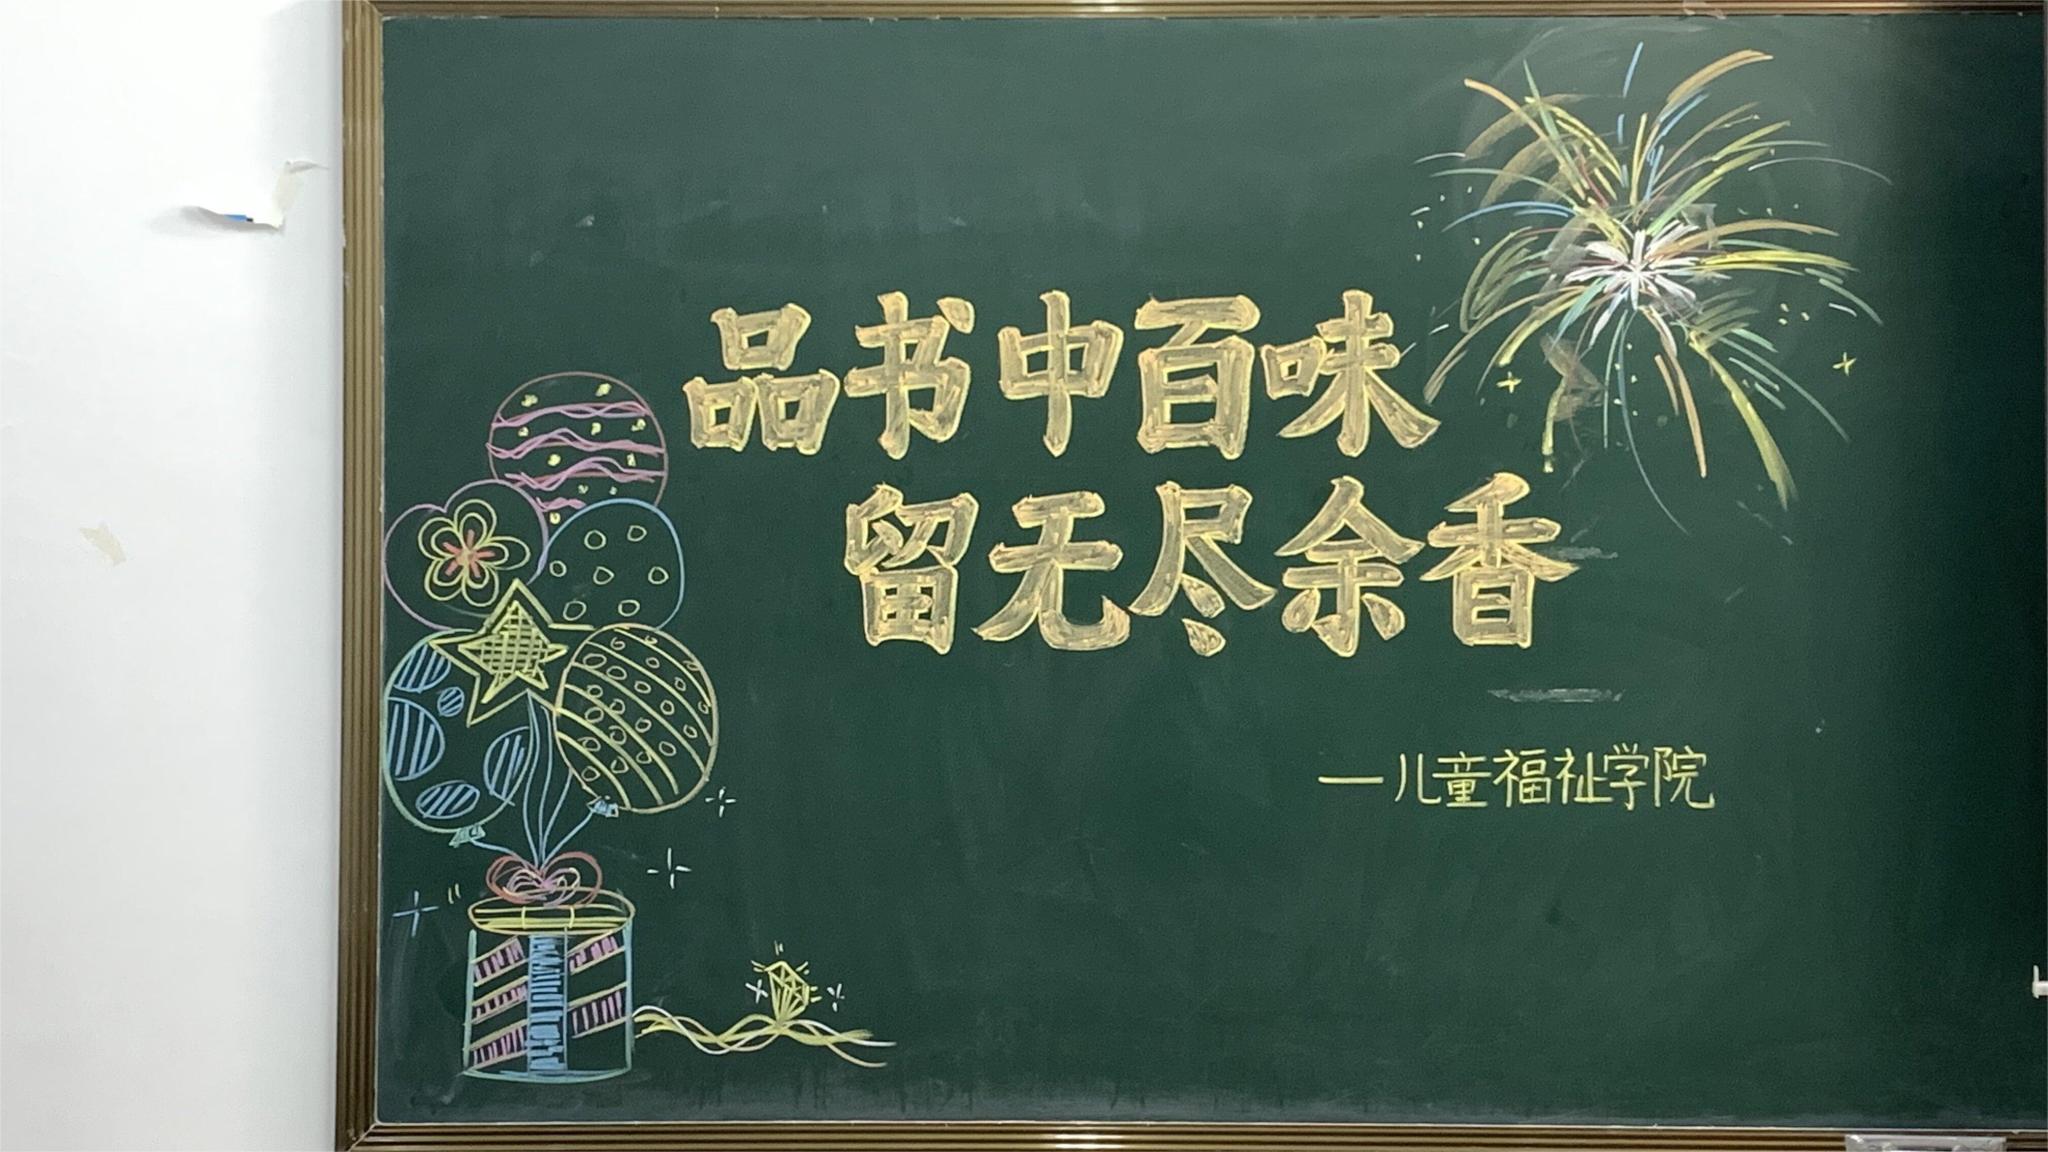 品书中百味
留无尽余香
—儿童福祉学院